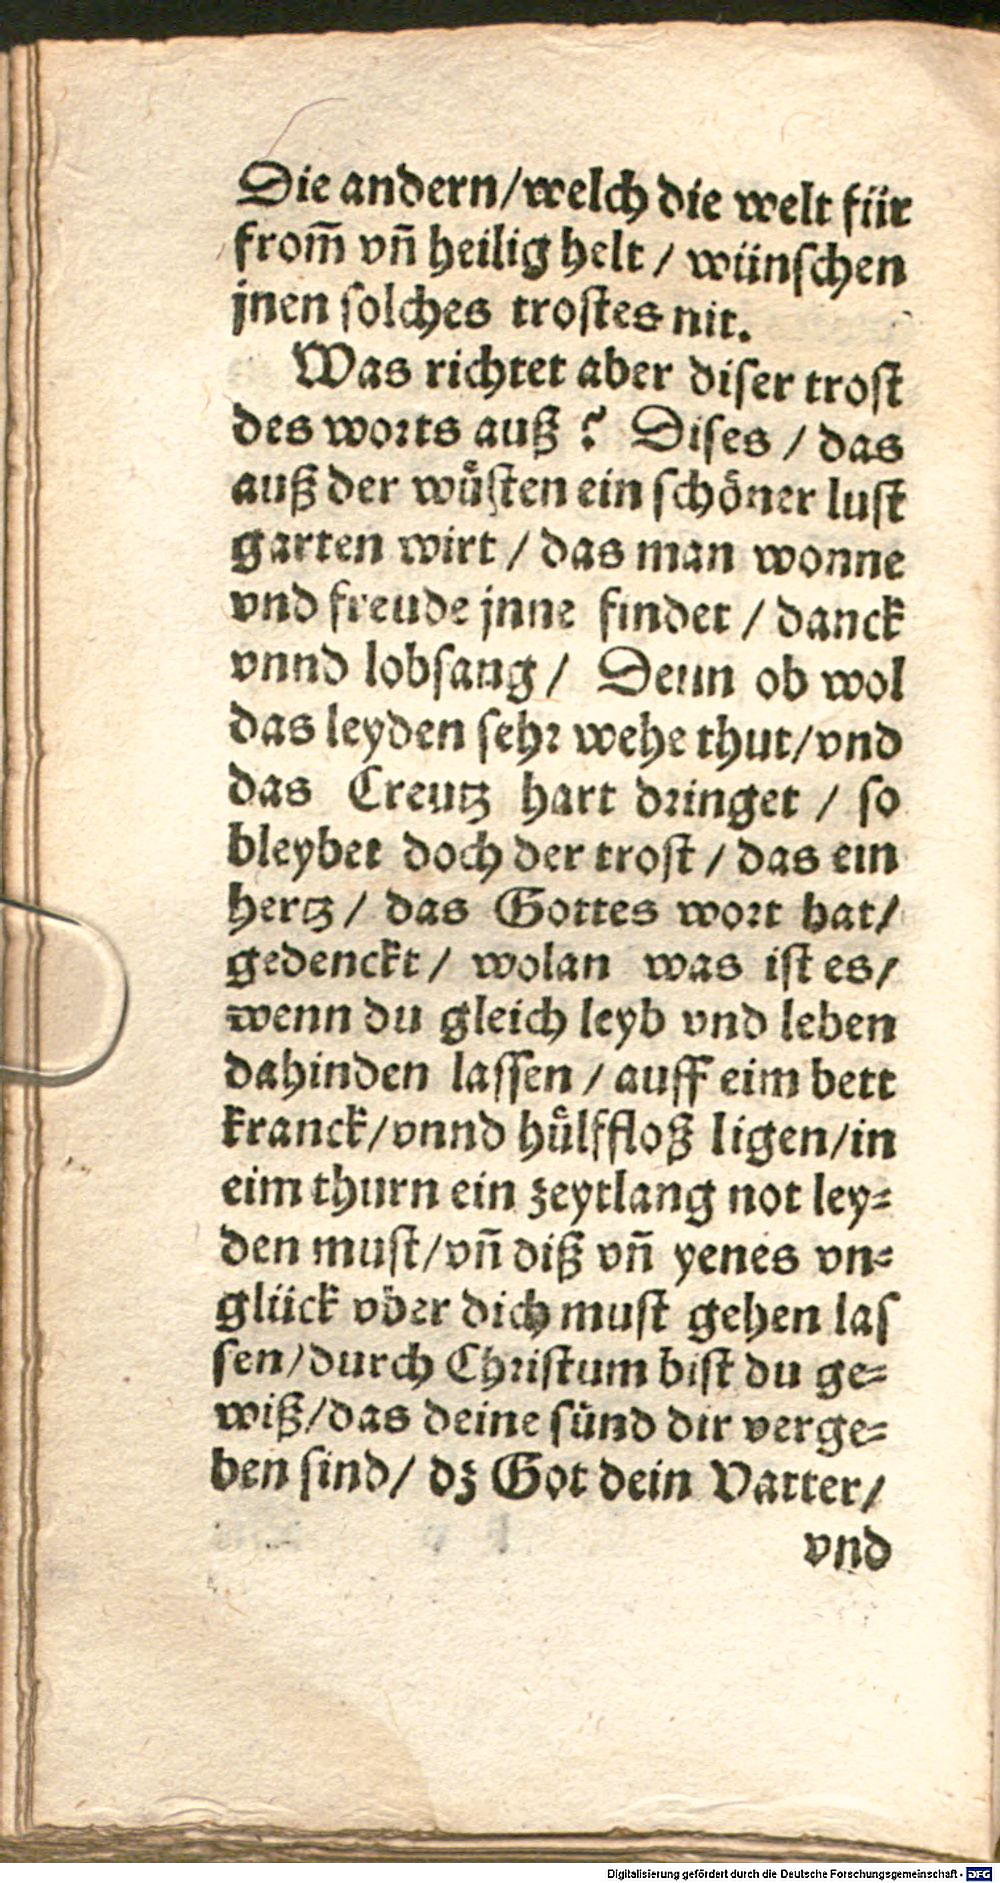 Die andern/welch die welt für
from̃ vñ heilig helt / wünschen
jnen solches trostes nit.
Was richtet aber diser trost
des worts auß? Dises / das
auß der wuͤsten ein schöner lust
garten wirt / das man wonne
vnd freude jnne findet / danck
vnnd lobsang / Denn ob wol
das leyden sehr wehe thut/vnd
das Creutz hart dringet / so
bleybet doch der trost / das ein
hertz / das Gottes wort hat/
gedenckt / wolan was ist es/
wenn du gleich leyb vnd leben
dahinden lassen / auff eim bett
kranck/vnnd huͤlffloß ligen/in
eim thurn ein zeytlang not ley⸗
den must/vñ diß vñ yenes vn⸗
glück vber dich must gehen las
sen/durch Christum bist du ge⸗
wiß/das deine sünd dir verge⸗
ben sind/ dz Got dein Vatter/
vnd
Digitalisierung gefördert durch die Deutsche Forschungsgemeinschaft - DFG